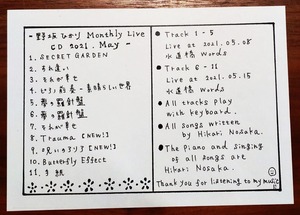 - 野坂ひかり Monthly Live
CD 2021. May -
1. SECRET GARDEN
2. すれ違い
3. きみが幸せ
4. 前奏 - 素晴らしい世界
5. 夢の羅針盤
6. 夢の羅針盤
7. きみが幸せ
8. Trauma [NEW!]
9. 呪いのうた [NEW!]
10. Butterfly Effect
11. 手紙
● Track 1 - 5
Live at 2021.05.08
水道橋 Words
● Track 6 - 11
Live at 2021.05.15
水道橋 Words
● All tracks play
with keyboard.
● All songs written
by Hikari Nosaka.
● The piano and singing
of all songs are
Hikari Nosaka.
Thank you for listening to my music